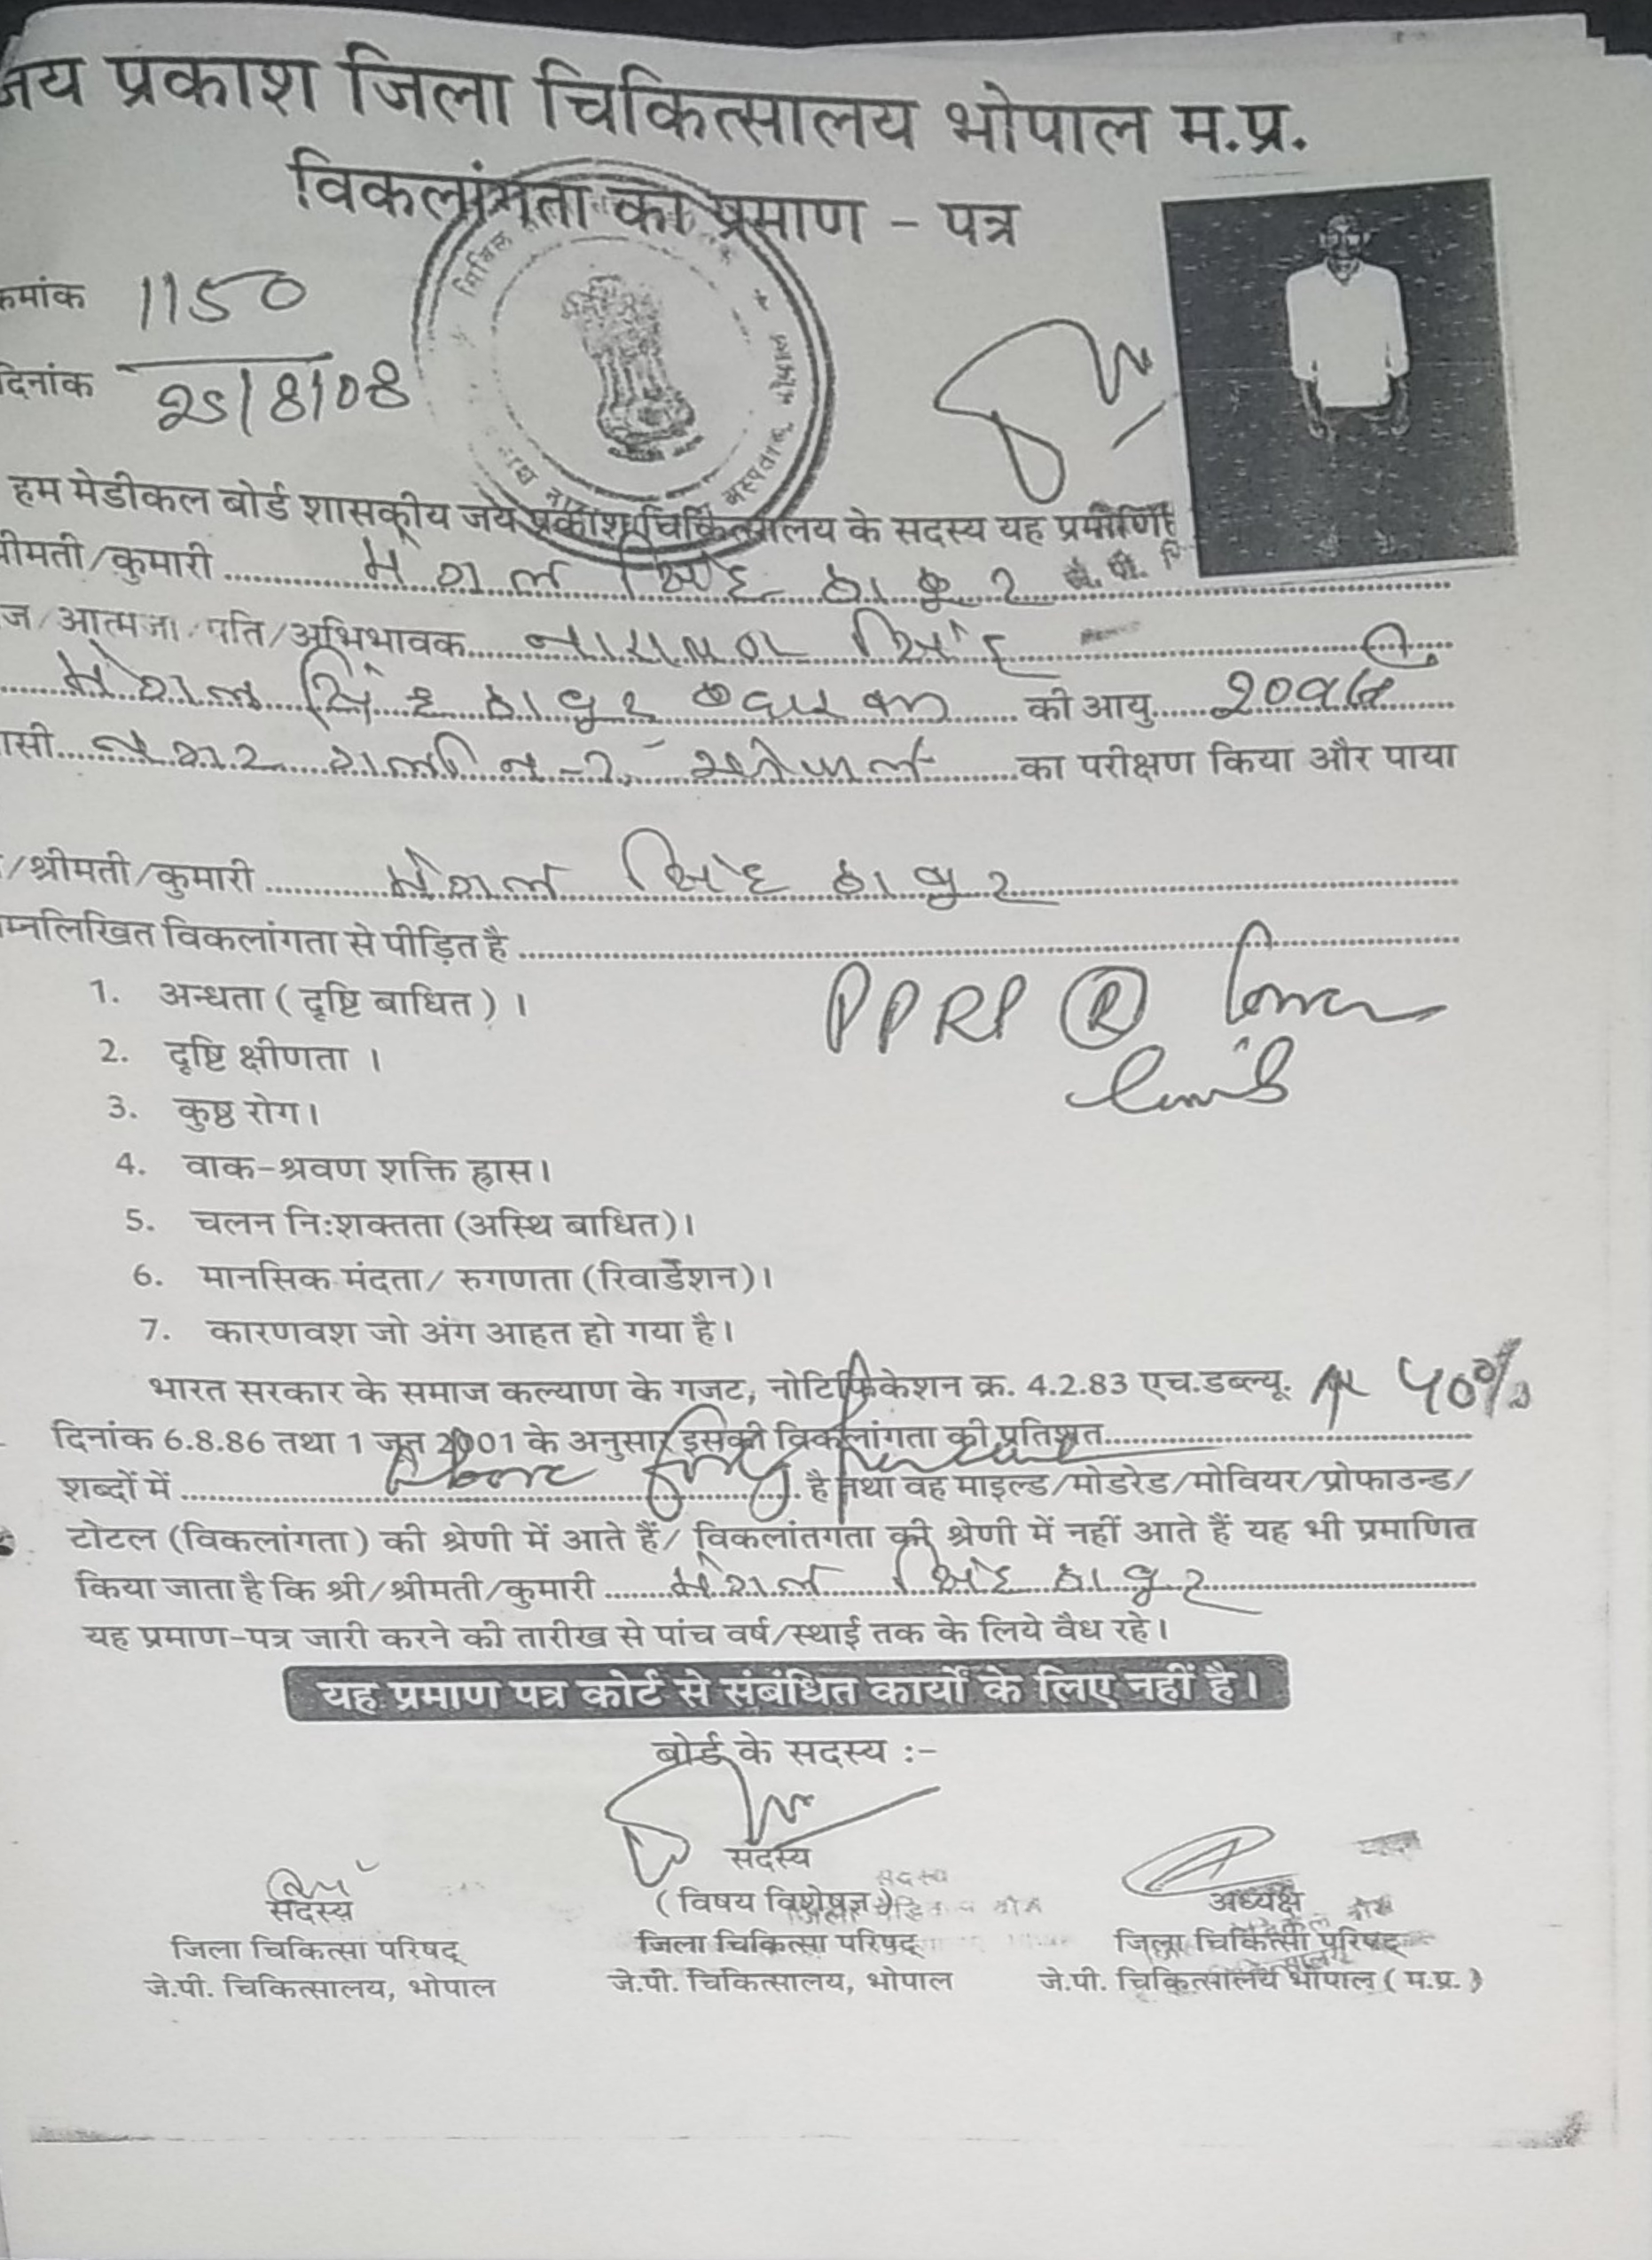 जय प्रकाश जिला चिकित्सालय भोपाल म.प्र.
विकलांगता का प्रमाण - पत्र
क्रमांक 1150
दिनांक 25/8/08
हम मेडीकल बोर्ड शासकीय जय प्रकाश चिकित्सालय के सदस्य यह प्रमाणि
श्रीमती/कुमारी सिंह ठाकुर
आत्मजा/पति/अभिभावक नारायण सिंह
सिंह ठाकुर की आयु
का परीक्षण किया और पाया
/श्रीमती/कुमारी सिंह ठाकुर
म्नलिखित विकलांगता से पीड़ित है
1. अन्धता ( दृष्टि बाधित ) ।
PPRP (R) lower
limb
2. दृष्टि क्षीणता ।
3. कुष्ठ रोग।
4. वाक-श्रवण शक्ति ह्रास।
5. चलन नि:शक्तता (अस्थि बाधित)।
6. मानसिक मंदता/ रुगणता (रिवार्डेशन)।
7. कारणवश जो अंग आहत हो गया है।
भारत सरकार के समाज कल्याण के गजट, नोटिफिकेशन क्र. 4.2.83 एच.डब्ल्यू. 40%
दिनांक 6.8.86 तथा 1 जून 2001 के अनुसार इसकी विकलांगता की प्रतिशत
शब्दों में है तथा वह माइल्ड/मोडरेड/मोवियर/प्रोफाउन्ड/
टोटल (विकलांगता) की श्रेणी में आते हैं/ विकलांतगता की श्रेणी में नहीं आते हैं यह भी प्रमाणित
किया जाता है कि श्री/श्रीमती/कुमारी सिंह ठाकुर
यह प्रमाण-पत्र जारी करने की तारीख से पांच वर्ष/स्थाई तक के लिये वैध रहे।
यह प्रमाण पत्र कोर्ट से संबंधित कार्यों के लिए नहीं है।
बोर्ड के सदस्य :-
सदस्य
जिला चिकित्सा परिषद्
जे.पी. चिकित्सालय, भोपाल
सदस्य
( विषय विशेषज्ञ )
जिला चिकित्सा परिषद्
जे.पी. चिकित्सालय, भोपाल
अध्यक्ष
जिला चिकित्सा परिषद्
जे.पी. चिकित्सालय भोपाल ( म.प्र. )